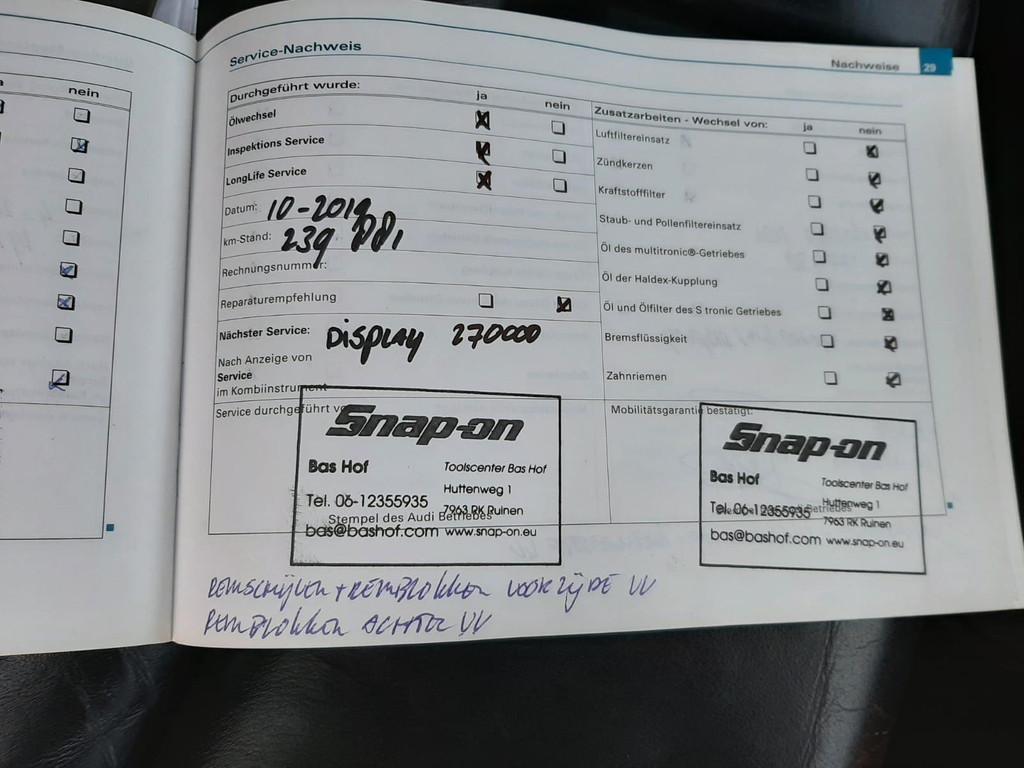 nein
Service-Nachweis
Nachweise 29
Durchgeführt wurde: ja nein
Ölwechsel
Inspektions Service
LongLife Service
Datum: 10-2019
km-Stand: 239
Rechnungsnummer:
Reparaturempfehlung
Nächster Service: Display 270000
Nach Anzeige von
Service
im Kombiinstrument
Service durchgeführt
Snap-on
Bas Hof Toolscenter Bas Hof
Huttenweg 1
Tel. 06-12355935 7963 RK Ruinen
Stempel des Audi Betriebes
bas@bashof.com www.snap-on.eu
Zusatzarbeiten - Wechsel von: ja nein
Luftfiltereinsatz
Zündkerzen
Kraftstofffilter
Staub- und Pollenfiltereinsatz
Öl des multitronic®-Getriebes
Öl der Haldex-Kupplung
Öl und Ölfilter des S tronic Getriebes
Bremsflüssigkeit
Zahnriemen
Mobilitätsgarantie bestätigt:
Snap-on
Bas Hof Toolscenter Bas Hof
Huttenweg 1
Tel. 06-12355935 7963 RK Ruinen
bas@bashof.com www.snap-on.eu
REMSCHIJVEN + REMBLOKKEN VOORZIJDE VV
REMBLOKKEN ACHTER VV